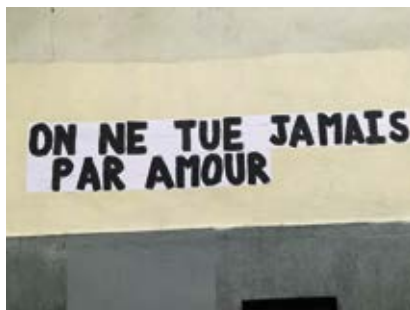 ON NE TUE JAMAIS
PAR AMOUR